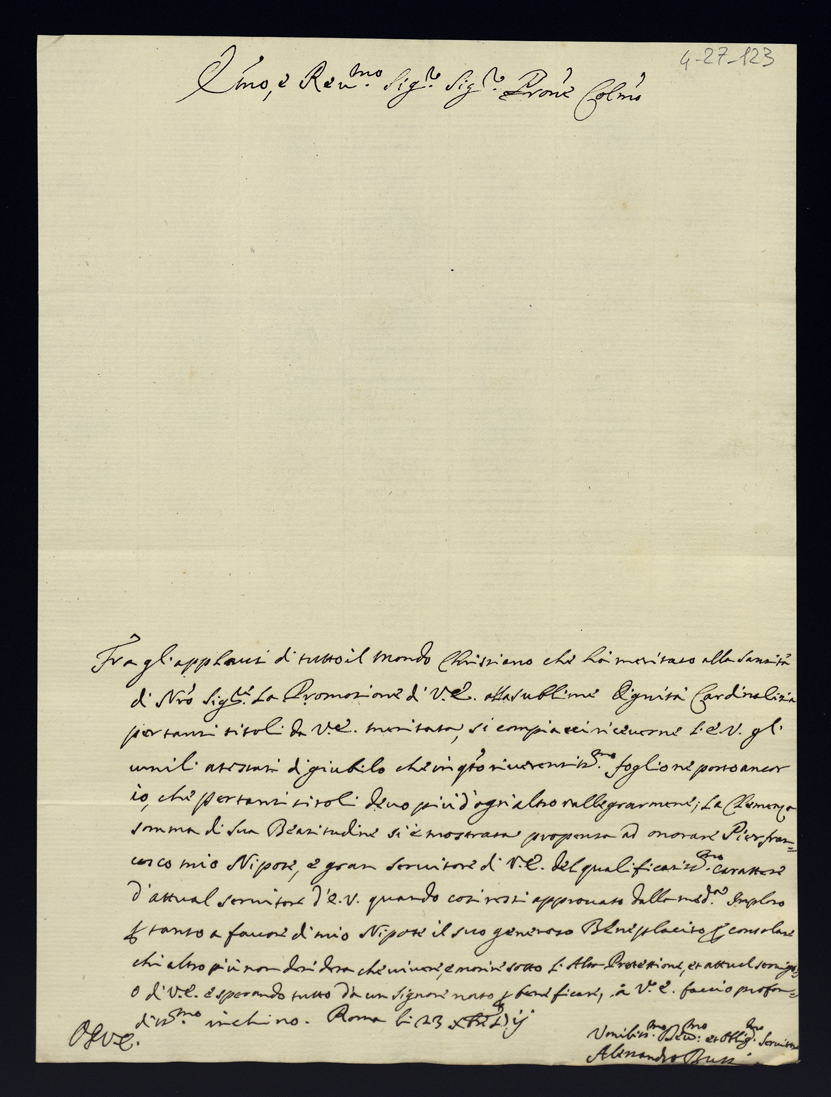 4-27-123
Emo, e Reu.mo Sig.re Sig.re Prone Colmo
Fra gli applausi di tutto il Mondo Christiano che hà meritato alla Santità
di Nro Sig.re La Promozione di V.E. alla sublime Dignità Cardinalizia
per tanti titoli da V.E. meritata, si compiacci riceuerne l'E.V. gli
umili attestati di giubilo che in qto riuerentiss.mo foglio ne porto ancor
io, che per tanti titoli deuo più d'ogni altro rallegrarmene; La Clemenza
somma di Sua Beatitudine si è mostrata propensa ad onorare Pierfran=
cesco mio Nipote, e gran Seruitore di V.E. del qualificatiss.mo carattere
d'attual seruitore d'E.V. quando così resti approuato dalla med.a Imploro
p tanto a fauore di mio Nipote il suo generoso Beneplacito p consolare
chi altro più non desidera che uiuere, e morire sotto l'Alta Protettione, et attual seruigi=
o di V.E. e sperando tutto da un Signore nato p beneficare, à V.E. faccio profon=
diss.mo inchino. Roma li 23
Umiliss.mo Deu.mo et Obblig.mo Seruitore
Alessandro Bussi